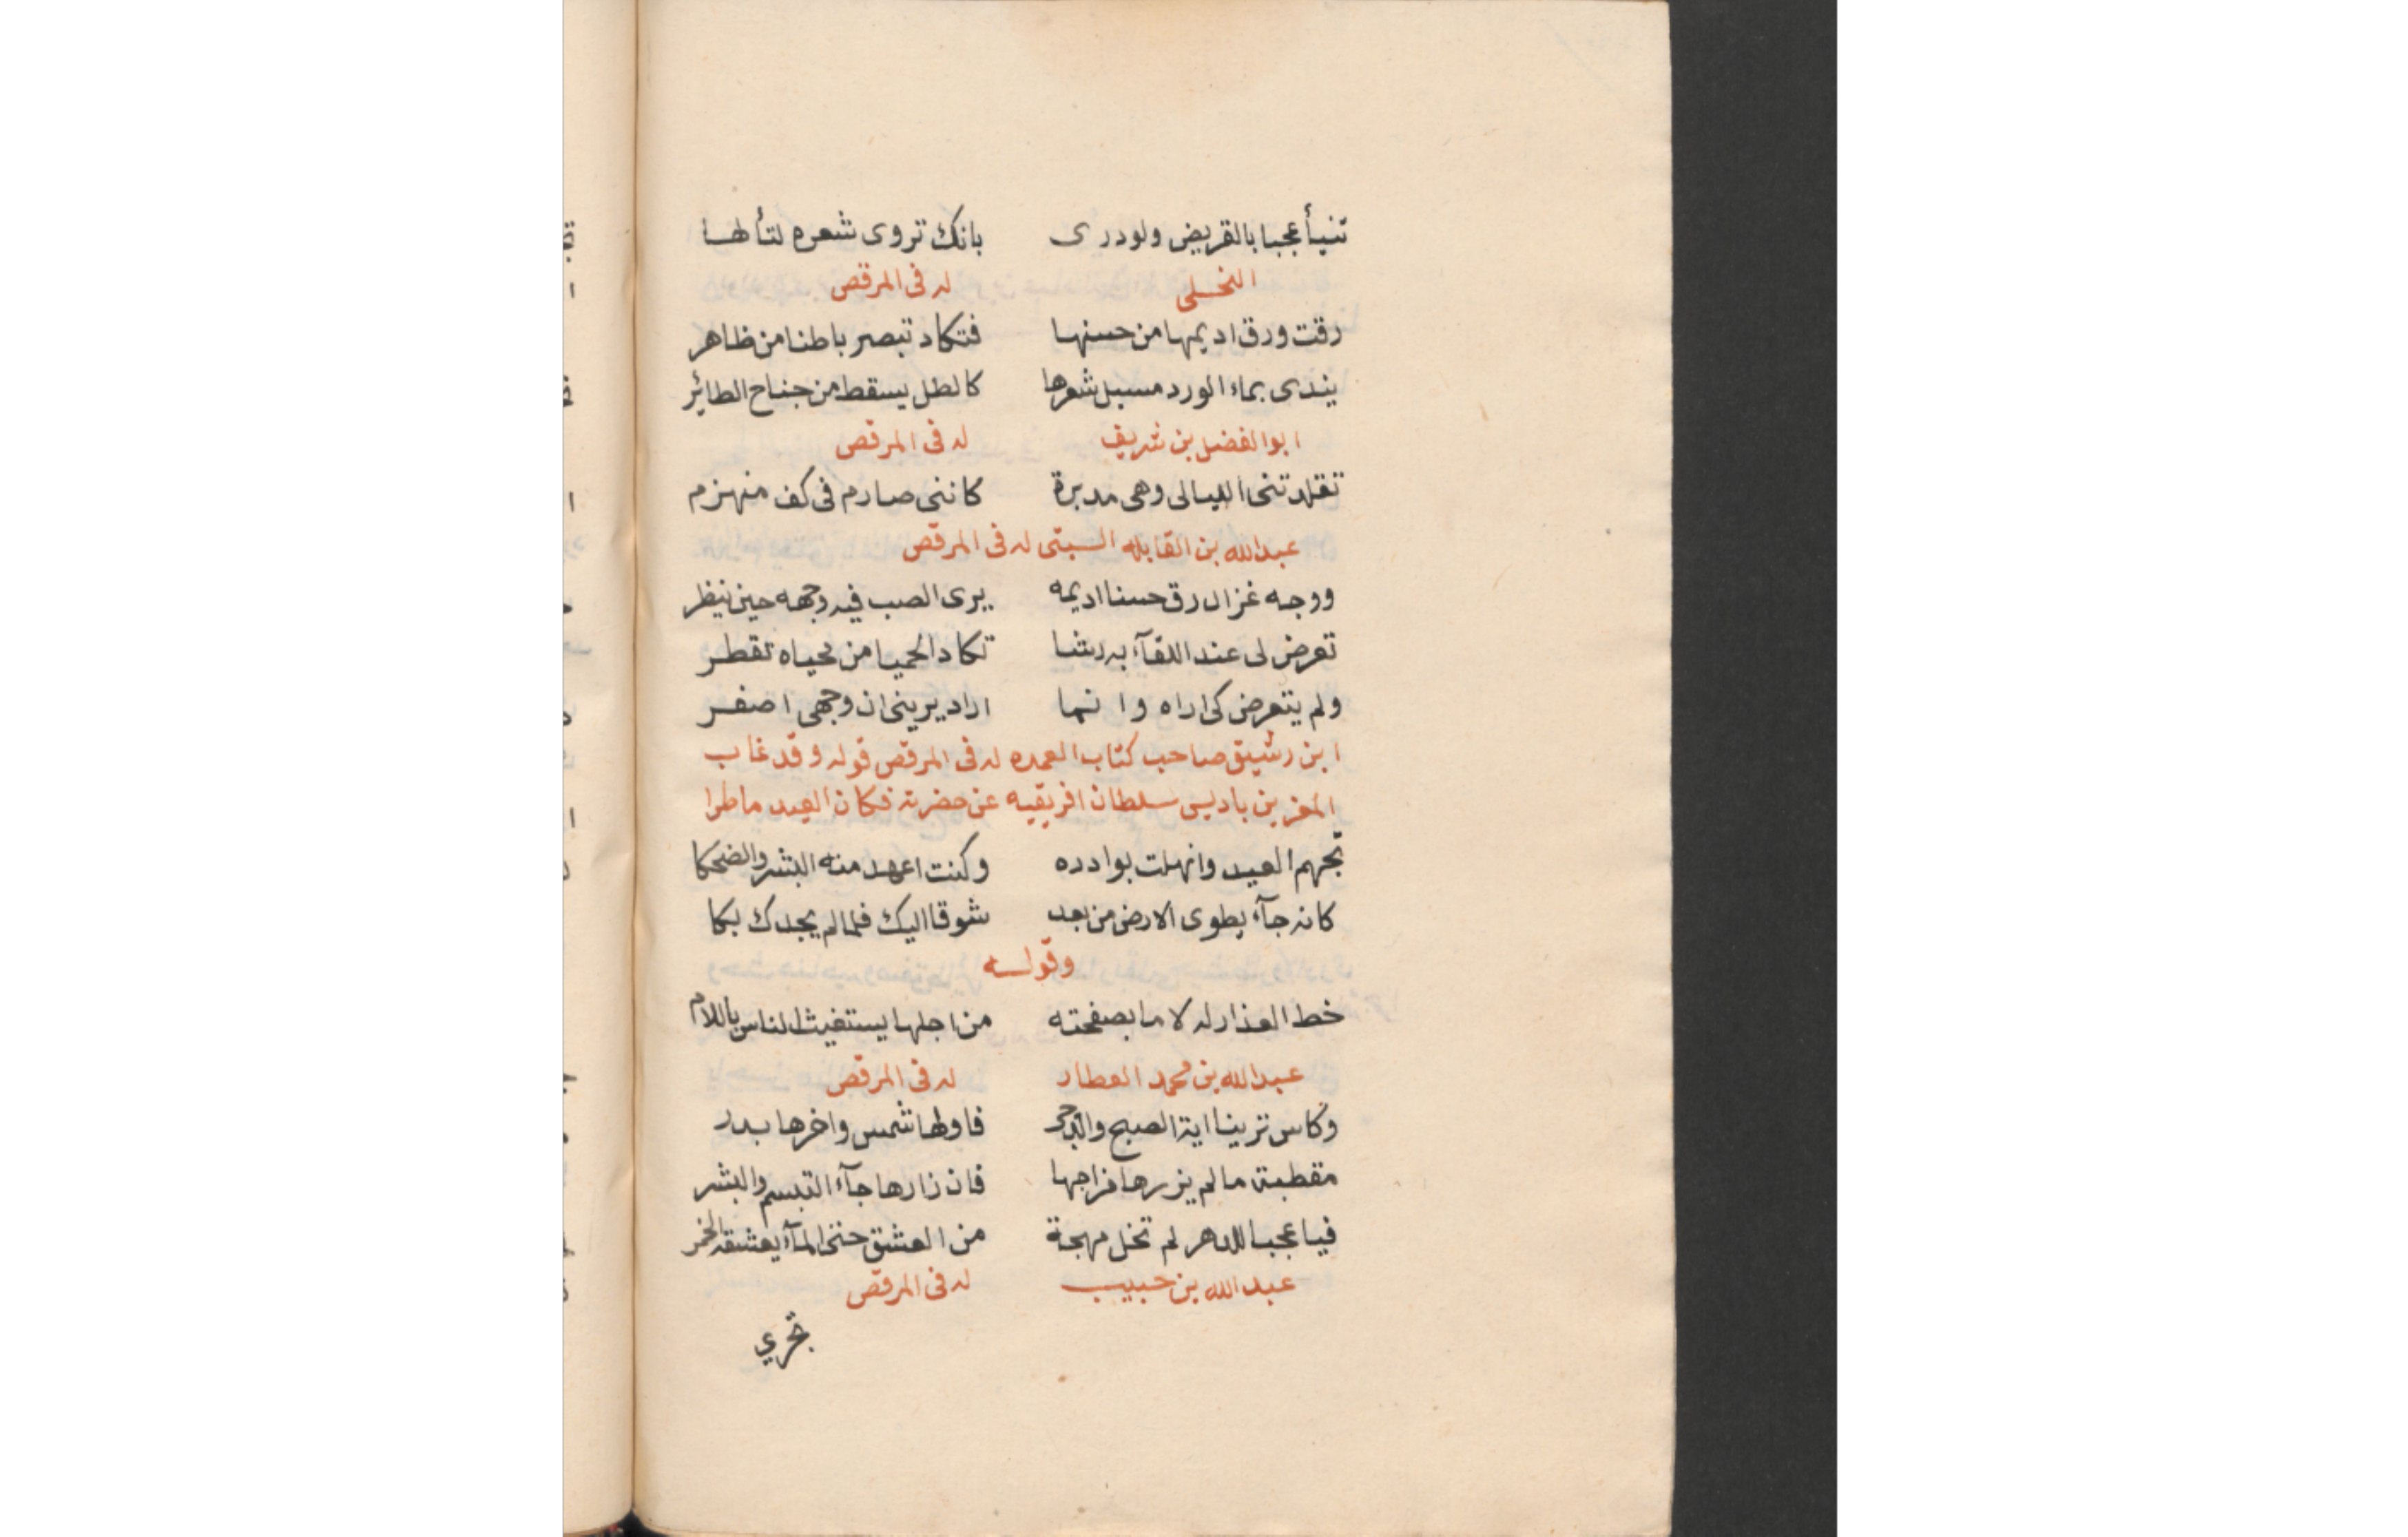 تنبأ عجبا بالقريض ولو درى بانك تروى شعره لتألها
النحلى له فى المرقص
رقت ورق اديمها من حسنها فتكاد تبصر باطنا من ظاهر
يندى بماء الورد مسبل شعرها كالطل يسقط من جناح الطائر
ابو الفضل بن شريف له فى المرقص
تقلدتنى الليالى وهى مدبرة كاننى صارم فى كف منهزم
عبد الله بن القابله السبتى له فى المرقص
ووجه غزال رق حسنا اديمه يرى الصب فيه وجهه حين ينظر
تعرض لى عند اللقآء به رشا تكاد الحميا من محياه تقطر
ولم يتعرض كى اراه وانما اراد يرينى ان وجهى اصفر
ابن رشيق صاحب كتاب العمده له فى المرقص قوله وقد غاب
المعز بن باديس سلطان افريقيه عن حضرته فكان العيد ماطرا
تجهم العيد وانهلت بوادره وكنت اعهد منه البشر والضحكا
كانه جآء يطوى الارض من بعد شوقا اليك فلما لم يجدك بكا
وقوله
خط العذار له لاما بصفحته من اجلها يستغيث الناس باللام
عبد الله بن محمد العطار له فى المرقص
وكاس ترينا اية الصبح والدجى فاولها شمس واخرها بدر
مقطبة ما لم يزرها مزاجها فان زارها جآء التبسم والبشر
فيا عجبا للدهر لم تخل مهجة من العشق حتى المآء يعشقه الخمر
عبد الله بن حبيب له فى المرقص
تجري